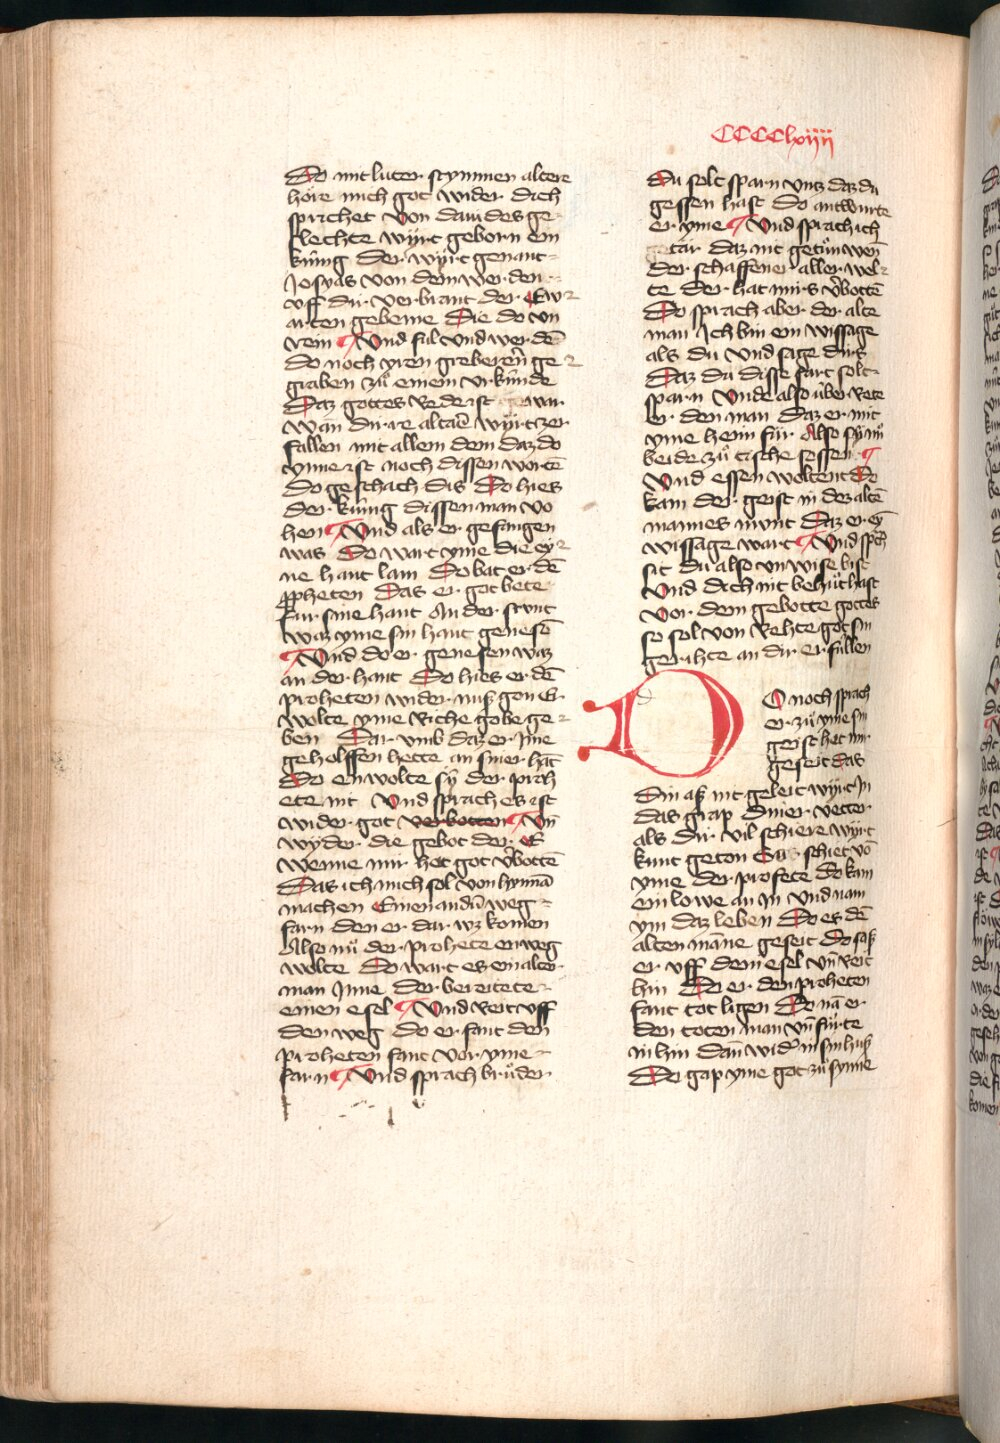 CCCClxiiij
Do mit luter stymmen altere
hoͤre mich got wider dich
sprichet Von dauides ge
slechte wyͤrt geborn ein
kuͤnig der wyͤrt genant
Josyas von dem werden
vff dir verbrant der Ew
arten gebeine Die do vn
rein ¶ Vnd ful vnd werdē
do noch yren grebeͤren ge
graben zuͦ einem vrkuͤnde
Daz gottes Rede ist war
wan dirre altar wyͤrt zer
fallen mit allem dem daz do
ynne ist noch dissen wortē
Do geschach dis Do hies
der kuͤnig dissen man vo
hen ¶ Vnd als er gefangen
was Do wart yme die ey
ne hant lam Do bat er dē
ppheten Das er got bete
Fur sine hant An der stunt
waz yme sin hant genesē
¶ Vnd do er genesen waz
an der hant Do hies er dē
propheten wider mitz gon Er
wolte yme Riche gobe ge
ben Dar vmb daz er Ime
geholffen hette an siner hāt
Do enwolte sÿ der proh
ete nit Vnd sprach es ist
wider got verbotten ¶ Vn̄
wyder die gebot der E
wenne mir het got v̾bottē
Das ich mich sol von hynnā
machen Einen andn̄ weg
farn den er dar wz komen
Also nuͤ der prohete enweg
wolte Do wart es ein alter
man Inne der bereitete
einen esel ¶ Vnd Reit vff
den weg do er fant den
propheten fant vor yme
farn ¶ Vnd sprach bruͦder
Du solt sparn vntz daz du
gessen hast Do antwurte
er yme ¶ Vnd sprach ich
getar daz nit getuͦn wen̄
der schaffener aller wel
te der hat mirs v̾bottē
Do sprach aber der alte
man Ich bin ein wissage
als du vnd sage dirs
Daz du disse fart solt
sparn Vnde also uͤber Rete
er den man Daz er mit
yme heim fuͤr Also sÿ nuͦ
beide zuͦ tische sessen ¶
Vnd essen woltent Do
kam der geist in dez altē
mannes munt Daz er eȳ
wissage wart ¶ Vnd sp̄ch
sit du also vnwise bist
Vnd dich nit behuͦt hast
vor dem gebotte gottes
so sol von Rehte got sin
gerihte an dir erfullen
DO noch sprach
er zuͦ yme sin
geist het mir
geseit das
Din aß nit geleit wyͤrt In
das grap diner vetter
als dir vil schiere wyͤrt
kunt geton Sus schiet vō
yme der profete Do kam
ein lowe an In vnd nam
ym daz leben Do es dē
alten māne geseit Do saß
er vff dem esel vn̄ Reit
hin Do er den proheten
fant tot ligen Do nā er
den toten man vn̄ fuͤrte
in hin dan̄ wid̾ in sin huß
Do gap yme got zuͦ synne